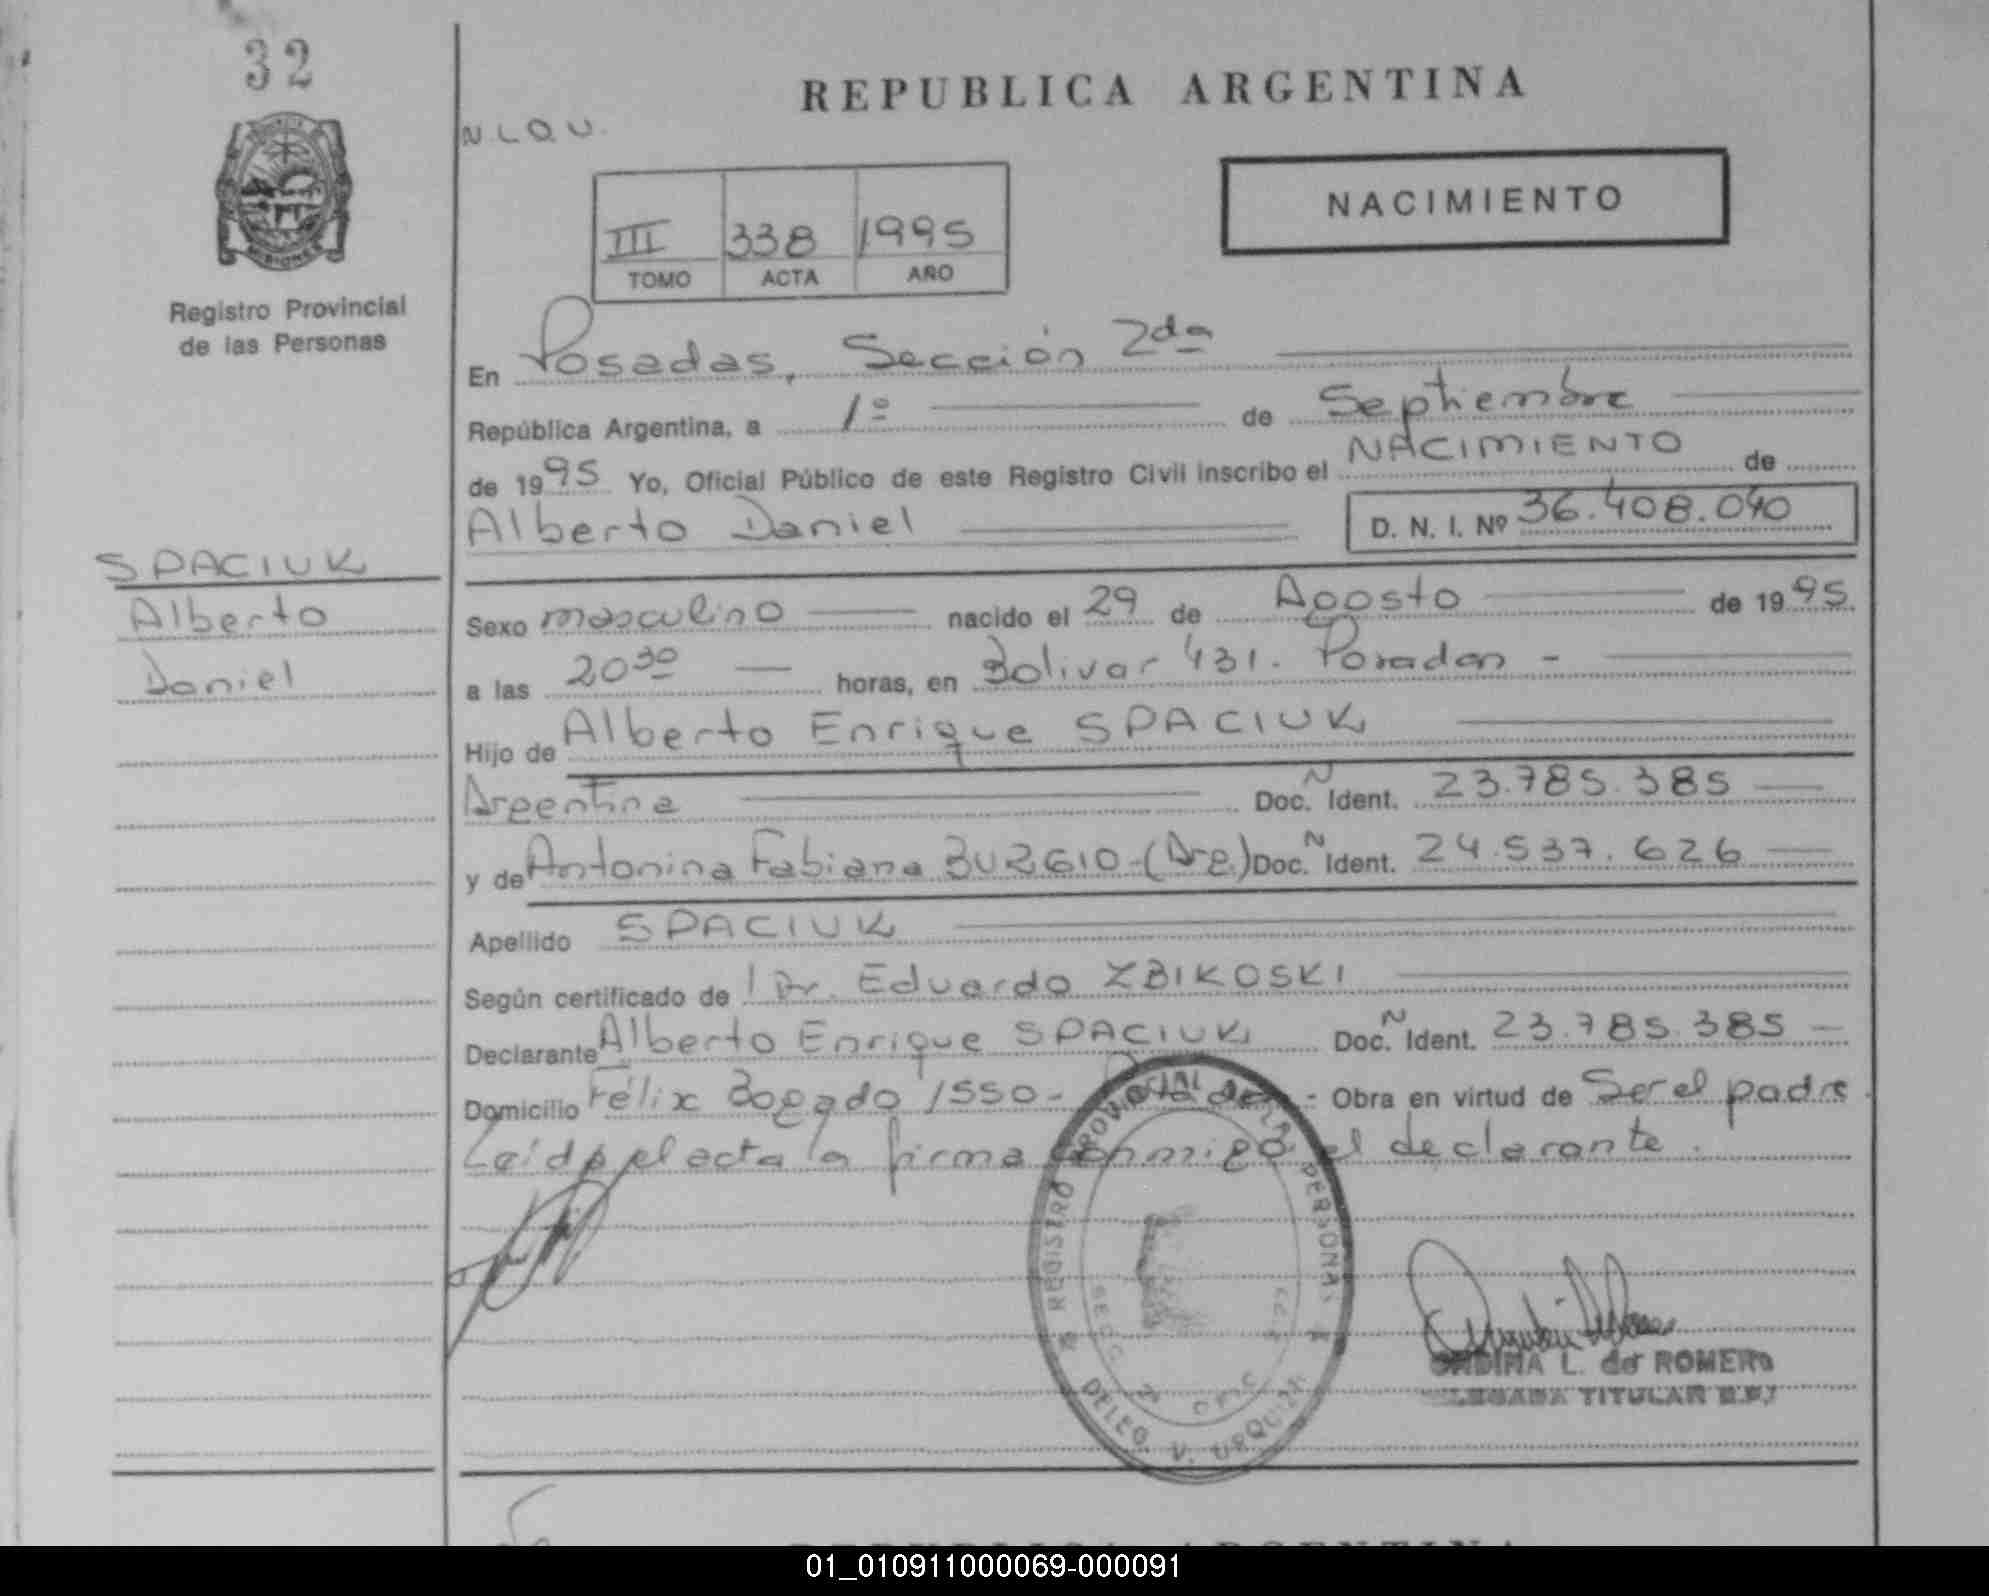 32
REPUBLICA ARGENTINA
N L Q U.
NACIMIENTO
III 338 1995
TOMO ACTA AÑO
MISIONES
Registro Provincial
de las Personas
En Posadas, Sección 2da
República Argentina, a 1º de Septiembre
de 1995 Yo, Oficial Público de este Registro Civil inscribo el NACIMIENTO de
Alberto Daniel D. N. I. Nº 36.408.040
SPACIUK
Alberto
Daniel
Sexo masculino nacido el 29 de Agosto de 1995
a las 20 30 horas, en Bolivar 431. Posadas -
Hijo de Alberto Enrique SPACIUK
Argentina Doc. Ñ Ident. 23.785.385
y de Antonina Fabiana BURGIO - (Arg.) Doc. Ñ Ident. 24.537.626
Apellido SPACIUK
Según certificado de l Dr. Eduardo ZBIKOSKI
Declarante Alberto Enrique SPACIUK Doc. Ñ Ident. 23.785.385
Domicilio Félix Bogado 1550 - Posadas - Obra en virtud de Ser el padre.
Leída el acta la firma conmigo el declarante.
REGISTRO PROVINCIAL DE LAS PERSONAS
SECC 2ª
DELEG. V. URQUIZA
ONDINA L. de ROMERO
TITULAR
REPUBLICA ARGENTINA
01_010911000069-000091